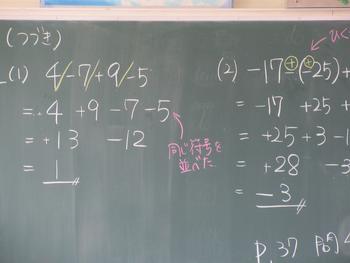 (つづき)
(1) 4-7+9-5
=+4 +9 -7 -5
=+13 -12
=1
同じ符号を
並べた
ひく
(2) -17-(-25)+
⊕ ⊕
= -17 +25 +
= +25 +3 -1
= +28 -3
= -3
P.37 問4